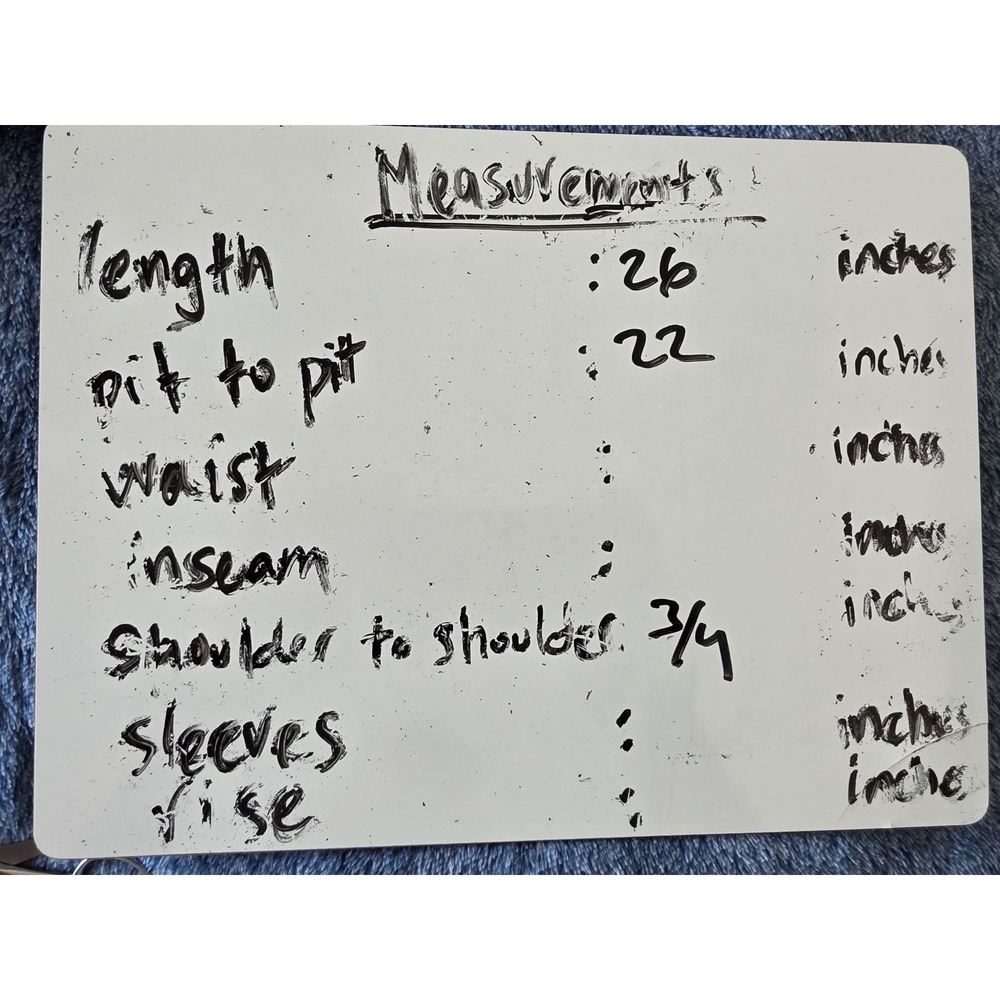 Measurements
length : 26 inches
pit to pit : 22 inches
waist : inches
inseam : inches
shoulder to shoulder : 3/4 inches
sleeves : inches
rise : inches